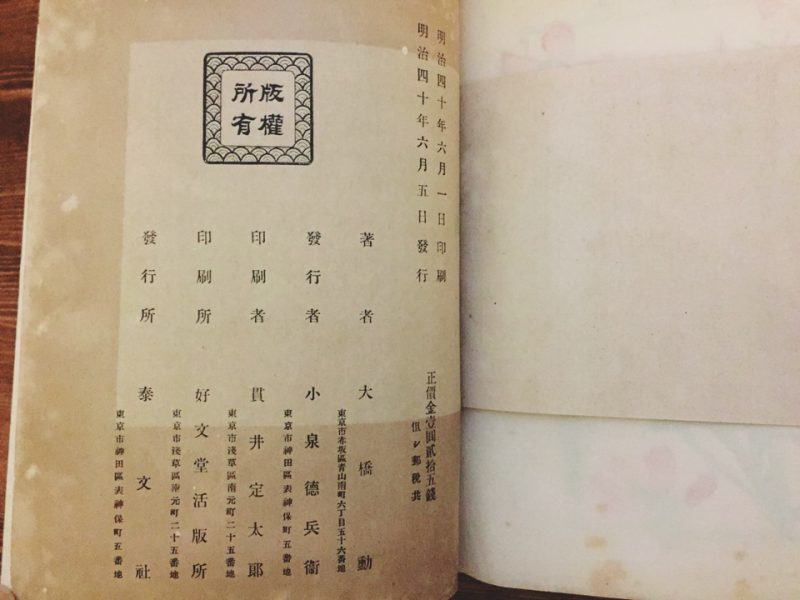 明治四十年六月一日印刷
明治四十年六月五日發行
正價金壹圓貳拾五錢
但シ郵税共
版權
所有
著者 大橋動
東京市赤坂區青山南町六丁目五十六番地
發行者 小泉德兵衞
東京市神田區表神保町五番地
印刷者 貫井定太郎
東京市淺草區南元町二十五番地
印刷所 好文堂活版所
東京市淺草區南元町二十五番地
發行所 泰文社
東京市神田區表神保町五番地